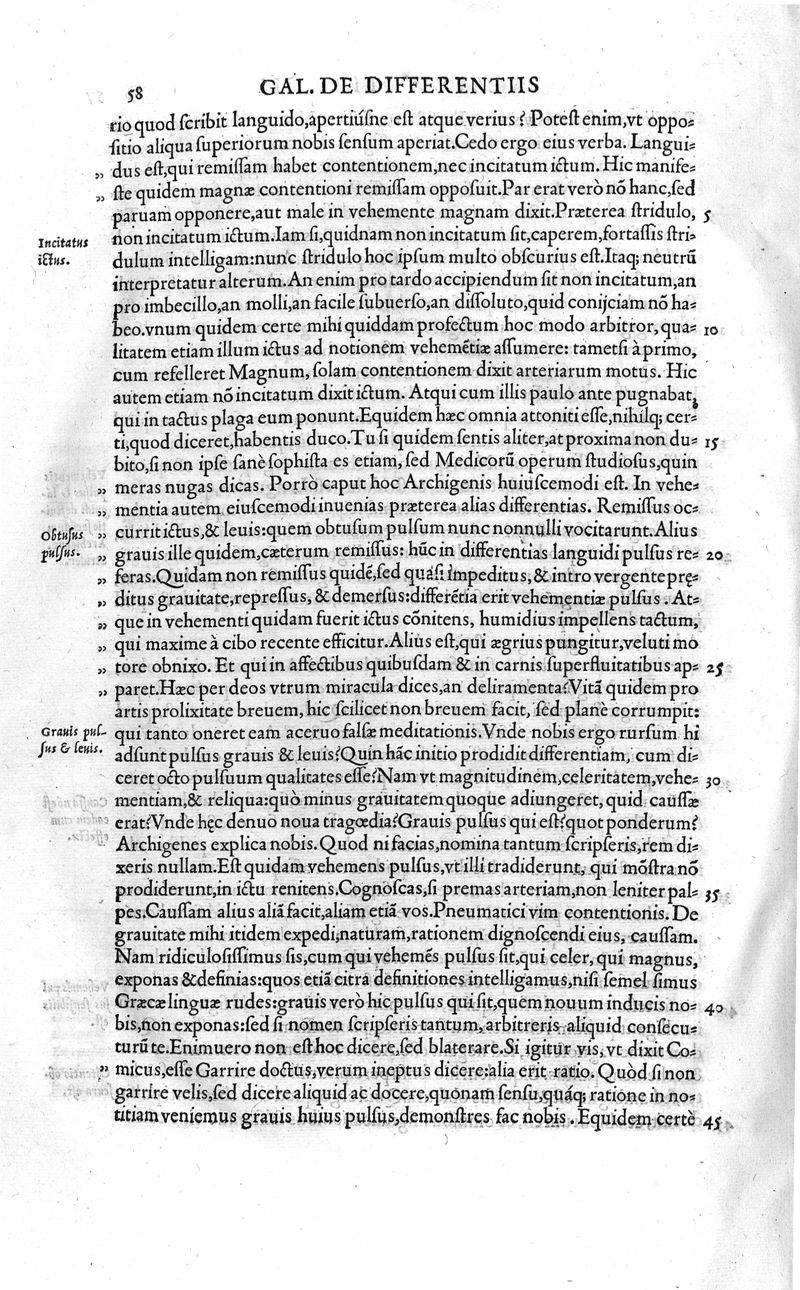 58
GAL. DE DIFFERENTIIS
rio quod ſcribit languido,apertiúſne eſt atque verius? Poteſt enim,vt oppo⸗
ſitio aliqua ſuperiorum nobis ſenſum aperiat.Cedo ergo eius verba. Langui⸗
„ dus eſt,qui remiſſam habet contentionem,nec incitatum ictum. Hic manife⸗
„ ſte quidem magnæ contentioni remiſſam oppoſuit.Par erat verò nō hanc,ſed
paruam opponere,aut male in vehemente magnam dixit.Præterea ſtridulo, 5
Incitatus
ictus.
non incitatum ictum.Iam ſi,quidnam non incitatum ſit,caperem,fortaſſis ſtri⸗
dulum intelligam:nunc ſtridulo hoc ipſum multo obſcurius eſt.Itaq; neutrū
interpretatur alterum.An enim pro tardo accipiendum ſit non incitatum,an
pro imbecillo,an molli,an facile ſubuerſo,an diſſoluto,quid conijciam nō ha⸗
beo.vnum quidem certe mihi quiddam profectum hoc modo arbitror,qua⸗ 10
litatem etiam illum ictus ad notionem vehemētiæ aſſumere: tametſi à primo,
cum refelleret Magnum,ſolam contentionem dixit arteriarum motus. Hic
autem etiam nō incitatum dixit ictum. Atqui cum illis paulo ante pugnabat,
qui in tactus plaga eum ponunt.Equidem hæc omnia attoniti eſſe,nihilq; cer⸗
ti,quod diceret,habentis duco.Tu ſi quidem ſentis aliter,at proxima non du⸗ 15
bito,ſi non ipſe ſanè ſophiſta es etiam,ſed Medicorū operum ſtudioſus,quin
„ meras nugas dicas. Porrò caput hoc Archigenis huiuſcemodi eſt. In vehe⸗
„ mentia autem eiuſcemodi inuenias præterea alias differentias. Remiſſus oc⸗
Obtuſus
pulſus.
„ currit ictus,& leuis:quem obtuſum pulſum nunc nonnulli vocitarunt.Alius
„ grauis ille quidem,cæterum remiſſus: hūc in differentias languidi pulſus re⸗ 20
„ feras.Quidam non remiſſus quidē,ſed quaſi impeditus,& intro vergente prę⸗
„ ditus grauitate,repreſſus, & demerſus:differētia erit vehementiæ pulſus . At⸗
„ que in vehementi quidam fuerit ictus cōnitens, humidius impellens tactum,
„ qui maxime à cibo recente efficitur.Alius eſt,qui ægrius pungitur,veluti mo
„ tore obnixo. Et qui in affectibus quibuſdam & in carnis ſuperfluitatibus ap⸗ 25
„ paret.Hæc per deos vtrum miracula dices,an deliramenta?Vitā quidem pro
artis prolixitate breuem, hic ſcilicet non breuem facit, ſed planè corrumpit:
Grauis pul⸗
ſus & leuis.
qui tanto oneret eam aceruo falſæ meditationis.Vnde nobis ergo rurſum hi
adſunt pulſus grauis & leuis?Quin hāc initio prodidit differentiam, cum di⸗
ceret octo pulſuum qualitates eſſe?Nam vt magnitudinem,celeritatem,vehe⸗ 30
mentiam,& reliqua:quò minus grauitatem quoque adiungeret, quid cauſſæ
erat?Vnde hęc denuo noua tragœdia?Grauis pulſus qui eſt?quot ponderum?
Archigenes explica nobis. Quod ni facias,nomina tantum ſcripſeris,rem di⸗
xeris nullam.Eſt quidam vehemens pulſus,vt illi tradiderunt, qui mōſtra nō
prodiderunt,in ictu renitens.Cognoſcas,ſi premas arteriam,non leniter pal⸗ 35
pes.Cauſſam alius aliā facit,aliam etiā vos.Pneumatici vim contentionis. De
grauitate mihi itidem expedi,naturam,rationem dignoſcendi eius, cauſſam.
Nam ridiculoſiſſimus ſis,cum qui vehemēs pulſus ſit,qui celer, qui magnus,
exponas &definias:quos etiā citra definitiones intelligamus,niſi ſemel ſimus
Græcælinguæ rudes:grauis verò hic pulſus qui ſit,quem nouum inducis no⸗ 40
bis,non exponas:ſed ſi nomen ſcripſeris tantum, arbitreris aliquid conſecu⸗
turū te.Enimuero non eſt hoc dicere,ſed blaterare.Si igitur vis, vt dixit Co⸗
„ micus,eſſe Garrire doctus,verum ineptus dicere:alia erit ratio. Quòd ſi non
garrire velis,ſed dicere aliquid ac docere,quonam ſenſu,quáq; ratione in no⸗
titiam veniemus grauis huius pulſus,demonſtres fac nobis . Equidem certè 45